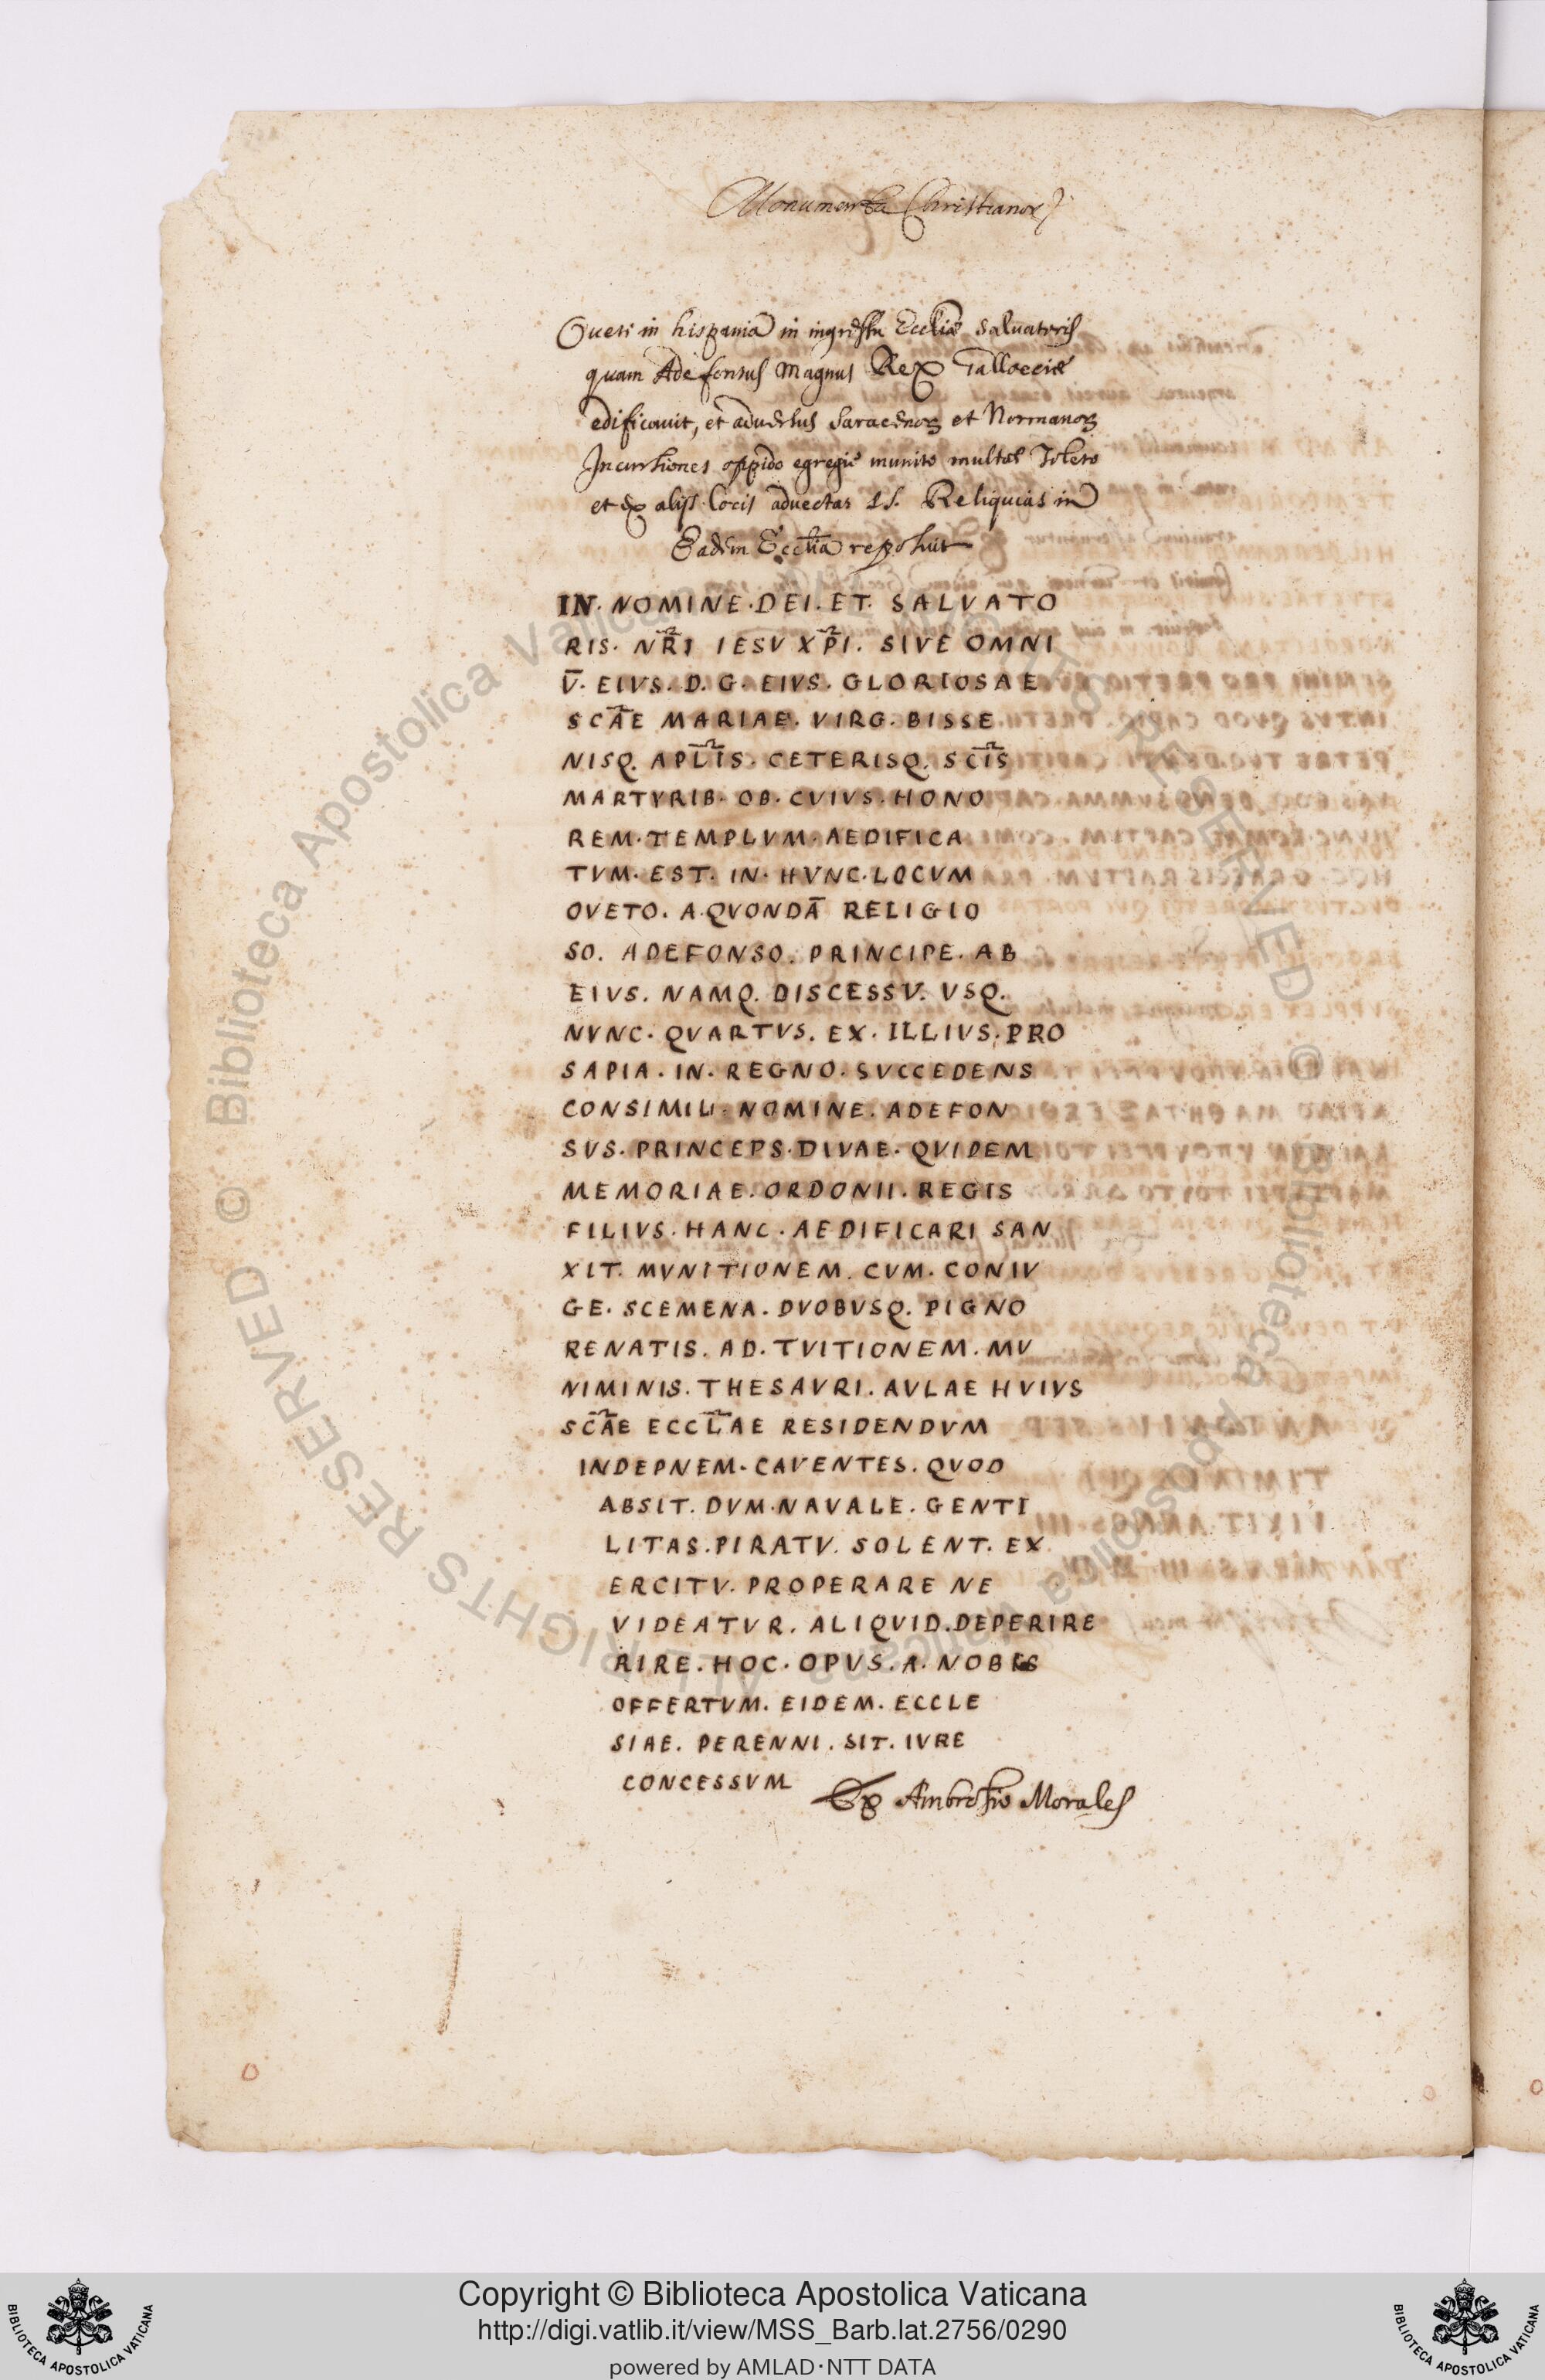 Monumenta Christianoꝝ
Oueti in hispania in ingressu Eccliæ Saluatoris
quam Adefonsus Magnus Rex Galloeciæ
edificauit, et aduersus Saracenos et Normanos
Incursiones oppido egregie munito multas Toleto
et ex alijs locis aduectas SS. Reliquias in
Eadem Ecclia reposuit
IN. NOMINE. DEI. ET. SALVATO
RIS. NR̄I IESV XP̄I. SIVE OMNI
V̄. EIVS. D. G. EIVS. GLORIOSAE
SCĀE MARIAE. VIRG. BISSE
NISQ. APL̄IS. CETERISQ. SC̄IS
MARTYRIB. OB. CVIVS. HONO
REM. TEMPLVM. AEDIFICA
TVM. EST. IN. HVNC. LOCVM
OVETO. A. QVONDĀ RELIGIO
SO. ADEFONSO. PRINCIPE. AB
EIVS. NAMQ. DISCESSV. VSQ.
NVNC. QVARTVS. EX. ILLIVS. PRO
SAPIA. IN. REGNO. SVCCEDENS
CONSIMILI. NOMINE. ADEFON
SVS. PRINCEPS. DIVAE. QVIDEM
MEMORIAE. ORDONII. REGIS
FILIVS. HANC. AEDIFICARI SAN
XIT. MVNITIONEM. CVM. CONIV
GE. SCEMENA. DVOBVSQ. PIGNO
RENATIS. AD. TVITIONEM. MV
NIMINIS. THESAVRI. AVLAE HVIVS
SC̄AE ECCL̄AE RESIDENDVM
INDEPNEM. CAVENTES. QVOD
ABSIT. DVM. NAVALE. GENTI
LITAS. PIRATV. SOLENT. EX
ERCITV. PROPERARE NE
VIDEATVR. ALIQVID. DEPERIRE
RIRE. HOC. OPVS. A. NOBIS
OFFERTVM. EIDEM. ECCLE
SIAE. PERENNI. SIT. IVRE
CONCESSVM
Ex Ambrosio Morales
Copyright © Biblioteca Apostolica Vaticana
http://digi.vatlib.it/view/MSS_Barb.lat.2756/0290
powered by AMLAD·NTT DATA